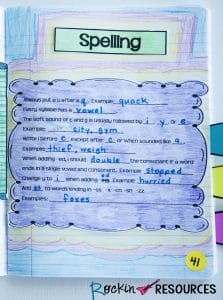 Spelling
Always put a u after a q. Example: quack
Every syllable has a vowel
The soft sound of c and g is usually followed by i, y, or e
Example: city, gym
Write i before e, except after c, or when sounded like a
Example: thief, weigh
When adding -ed, I should double the consonant if a word
ends in a single vowel and consonant. Example: stopped
Change y to i when adding ed. Example: hurried
Add es to words ending in -ss -x -ch -sh -zz
Examples: foxes
41
Rockin RESOURCES